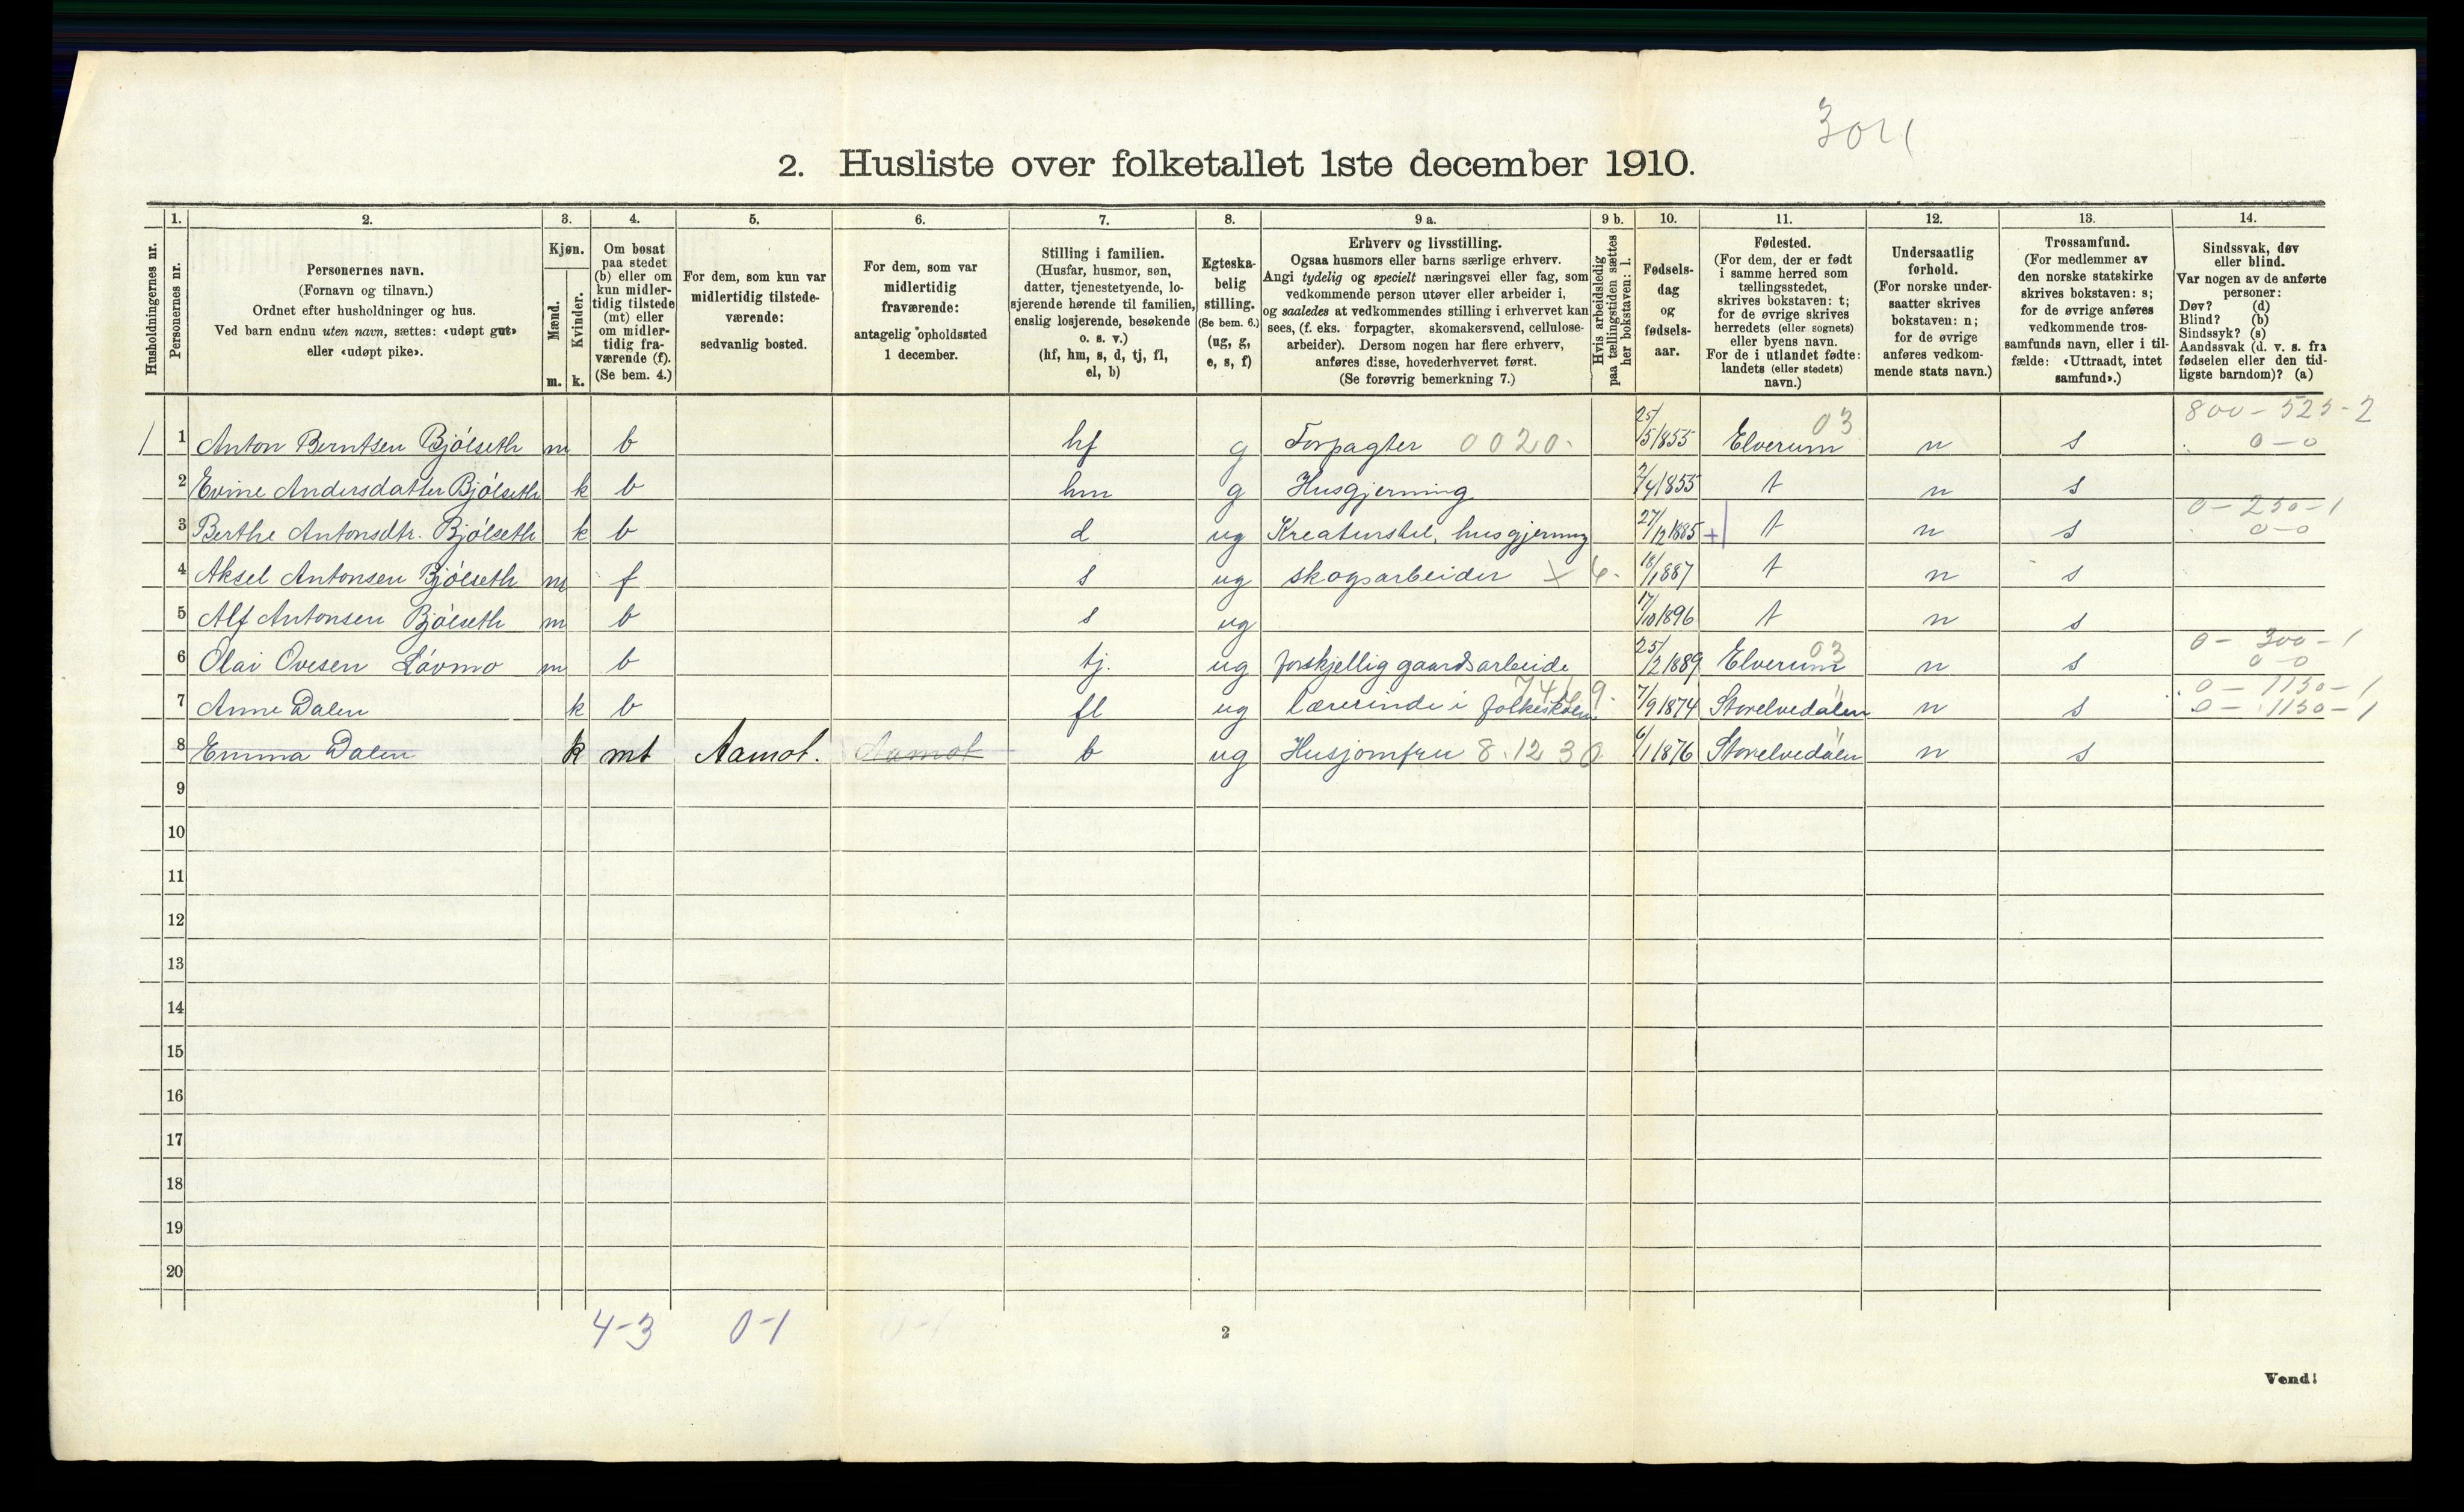 3041
2. Husliste over folketallet 1ste december 1910.
Husholdningernes nr.
1. Personernes nr.
2. Personernes navn.
(Fornavn og tilnavn.)
Ordnet efter husholdninger og hus.
Ved barn endnu uten navn, sættes: «udøpt gut»
eller «udøpt pike».
3. Kjøn.
Mænd. m.
Kvinder. k.
4. Om bosat
paa stedet
(b) eller om
kun midler-
tidig tilstede
(mt) eller
om midler-
tidig fra-
værende (f).
(Se bem. 4.)
5. For dem, som kun var
midlertidig tilstede-
værende:
sedvanlig bosted.
6. For dem, som var
midlertidig
fraværende:
antagelig opholdssted
1 december.
7. Stilling i familien.
(Husfar, husmor, søn,
datter, tjenestetyende, lo-
sjerende hørende til familien,
enslig losjerende, besøkende
o. s. v.)
(hf, hm, s, d, tj, fl,
el, b)
8. Egteska-
belig
stilling.
(Se bem. 6.)
(ug, g,
e, s, f)
9 a. Erhverv og livsstilling.
Ogsaa husmors eller barns særlige erhverv.
Angi tydelig og specielt næringsvei eller fag, som
vedkommende person utøver eller arbeider i,
og saaledes at vedkommendes stilling i erhvervet kan
sees, (f. eks. forpagter, skomakersvend, cellulose-
arbeider). Dersom nogen har flere erhverv,
anføres disse, hovederhvervet først.
(Se forøvrig bemerkning 7.)
9 b. Hvis arbeidsledig
paa tællingstiden sættes
her bokstaven: l.
10. Fødsels-
dag
og
fødsels-
aar.
11. Fødested.
(For dem, der er født
i samme herred som
tællingsstedet,
skrives bokstaven: t;
for de øvrige skrives
herredets (eller sognets)
eller byens navn.
For de i utlandet fødte:
landets (eller stedets)
navn.)
12. Undersaatlig
forhold.
(For norske under-
saatter skrives
bokstaven: n;
for de øvrige
anføres vedkom-
mende stats navn.)
13. Trossamfund.
(For medlemmer av
den norske statskirke
skrives bokstaven: s;
for de øvrige anføres
vedkommende tros-
samfunds navn, eller i til-
fælde: «Uttraadt, intet
samfund».)
14. Sindssvak, døv
eller blind.
Var nogen av de anførte
personer:
Døv? (d)
Blind? (b)
Sindssyk? (s)
Aandssvak (d. v. s. fra
fødselen eller den tid-
ligste barndom)? (a)
1 1 Anton Berntsen Bjölseth m b hf g Forpagter 0020 25/5 1855 Elverum 03 n s 800 - 525 - 2 0-0
2 Evine Andersdatter Bjölseth k b hm g Husgjerning 2/4 1855 t n s
3 Berthe Antonsdtr. Bjölseth k b d ug Kreaturstel, husgjerning 27/12 1885 + t n s 0 - 250 - 1 0-0
4 Aksel Antonsen Bjölseth m f s ug skogsarbeider X 6. 18/1 1887 t n s
5 Alf Antonsen Bjölseth m b s ug 17/10 1896 t n s
6 Olai Ovesen Lövmo m b tj. ug forskjellig gaardsarbeide 25/2 1889 Elverum 03 n s 0 - 300 - 1 0-0
7 Anne Dalen k b fl ug lærerinde i folkeskolen 7/9 1874 Storelvedalen n s 0 - 1150 - 1 0 - 1150 - 1
8 Emma Dalen k mt Aamot. Aamot b ug Husjomfru 8.12 30 6/1 1876 Storelvedalen n s
9
10
11
12
13
14
15
16
17
18
19
20
4-3 0-1 0-1
2
Vend!